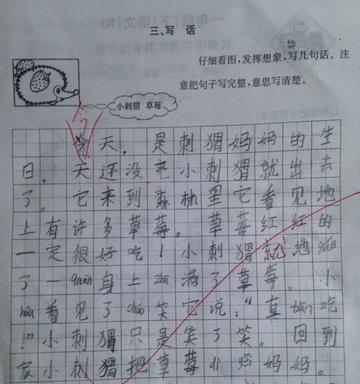 三、写 话
仔细看图，发挥想象，写几句话。注
意把句子写完整，意思写清楚。
小刺猬 草莓
今天，是刺猬妈妈的生
日，天还没亮小刺猬就出去
了。它来到森林里它看见地
上有许多草莓。草莓红红的
一定很好吃！小刺猬就地gǔn
了一quān身上zā满了草莓。小
看见了cháo笑它说：“真tān吃
！”小刺猬只是笑了笑。回到
家小刺猬把草莓妈妈。